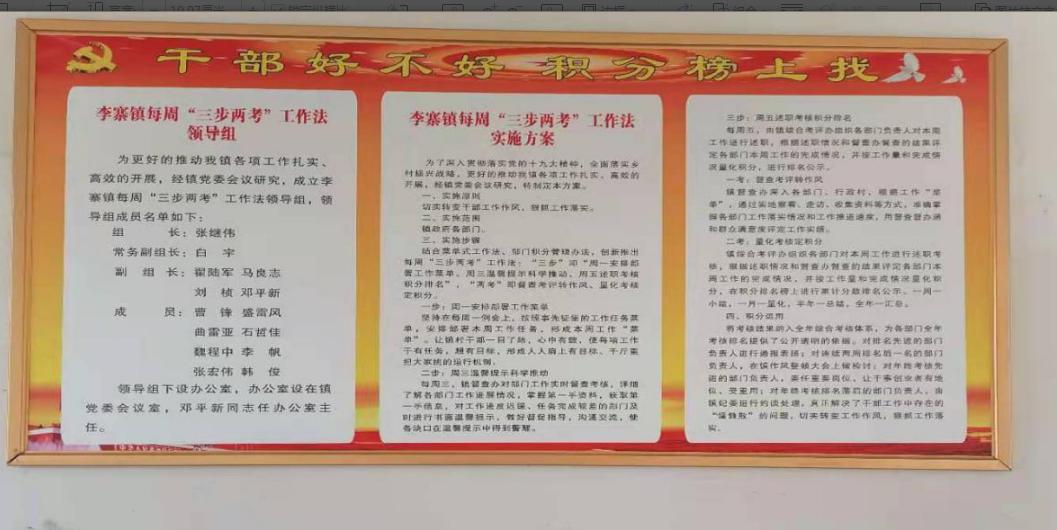 干部好不好 积分榜上找
李寨镇每周“三步两考”工作法
领导组
为更好的推动我镇各项工作扎实、
高效的开展，经镇党委会议研究，成立李
寨镇每周“三步两考”工作法领导组，领
导组成员名单如下：
组 长：张继伟
常务副组长：白 宇
副 组 长：翟陆军 马良志
刘 桢 邓平新
成 员：曹 锋 盛雷凤
曲雷亚 石哲佳
魏程中 李 帆
张宏伟 韩 俊
领导组下设办公室，办公室设在镇
党委会议室，邓平新同志任办公室主
任。
李寨镇每周“三步两考”工作法
实施方案
为了深入贯彻落实党的十九大精神，全面落实乡
村振兴战略，更好的推动我镇各项工作扎实、高效的
开展，经镇党委会议研究，特制定本方案。
一、实施原则
切实转变干部工作作风，狠抓工作落实。
二、实施范围
镇政府各部门。
三、实施步骤
结合菜单式工作法、部门积分管理办法，创新推出
每周“三步两考”工作法：“三步”即“周一安排部
署工作菜单、周三温馨提示科学推动、周五述职考核
积分排名”，“两考”即督查考评转作风、量化考核
定积分。
一步：周一安排部署工作菜单
坚持在每周一例会上，按照事先征集的工作任务菜
单，安排部署本周工作任务，形成本周工作“菜
单”。让镇村干部一目了然，心中有数，使每项工作
干有任务，赶有目标，形成人人肩上有目标，千斤重
担大家挑的运行机制。
二步：周三温馨提示科学推动
每周三，镇督查办对部门工作实时督查考核，详细
了解各部门工作进展情况，掌握第一手资料，获取第
一手信息，对工作进度迟缓、任务完成较差的部门及
时进行书面温馨提示，做好督促指导，沟通交流，使
各缺口在温馨提示中得到警醒。
三步：周五述职考核积分排名
每周五，由镇综合考评办组织各部门负责人对本周
工作进行述职，根据述职情况和督查办督查的结果评
定各部门本周工作的完成情况，并按工作量和完成情
况量化积分，进行排名公示。
一考：督查考评转作风
镇督查办深入各部门、行政村，根据工作“菜
单”，通过实地察看、走访、收集资料等方式，准确掌
握各部门工作落实情况和工作推进速度，用督查督办函
和群众满意度评定工作实绩。
二考：量化考核定积分
镇综合考评办组织各部门对本周工作进行述职考
核，根据述职情况和督查办督查的结果评定各部门本
周工作的完成情况，并按工作量和完成情况量化积
分，在积分排名榜上进行累计分数排名公示。一周一
小结，一月一量化，半年一总结，全年一汇总。
四、积分运用
将考核结果纳入全年综合考核体系，为各部门全年
考核排名提供了公开透明的依据。对排名先进的部门
负责人进行通报表扬；对连续两周排名后一名的部门
负责人，在镇作风整顿大会上做检讨；对年终考核先
进的部门负责人，委任重要岗位，让干事创业者有地
位、受重用；对年终考核排名落后的部门负责人，由
镇纪委进行约谈处理，真正解决了干部工作中存在的
“慵懒散”的问题，切实转变工作作风，狠抓工作落
实。